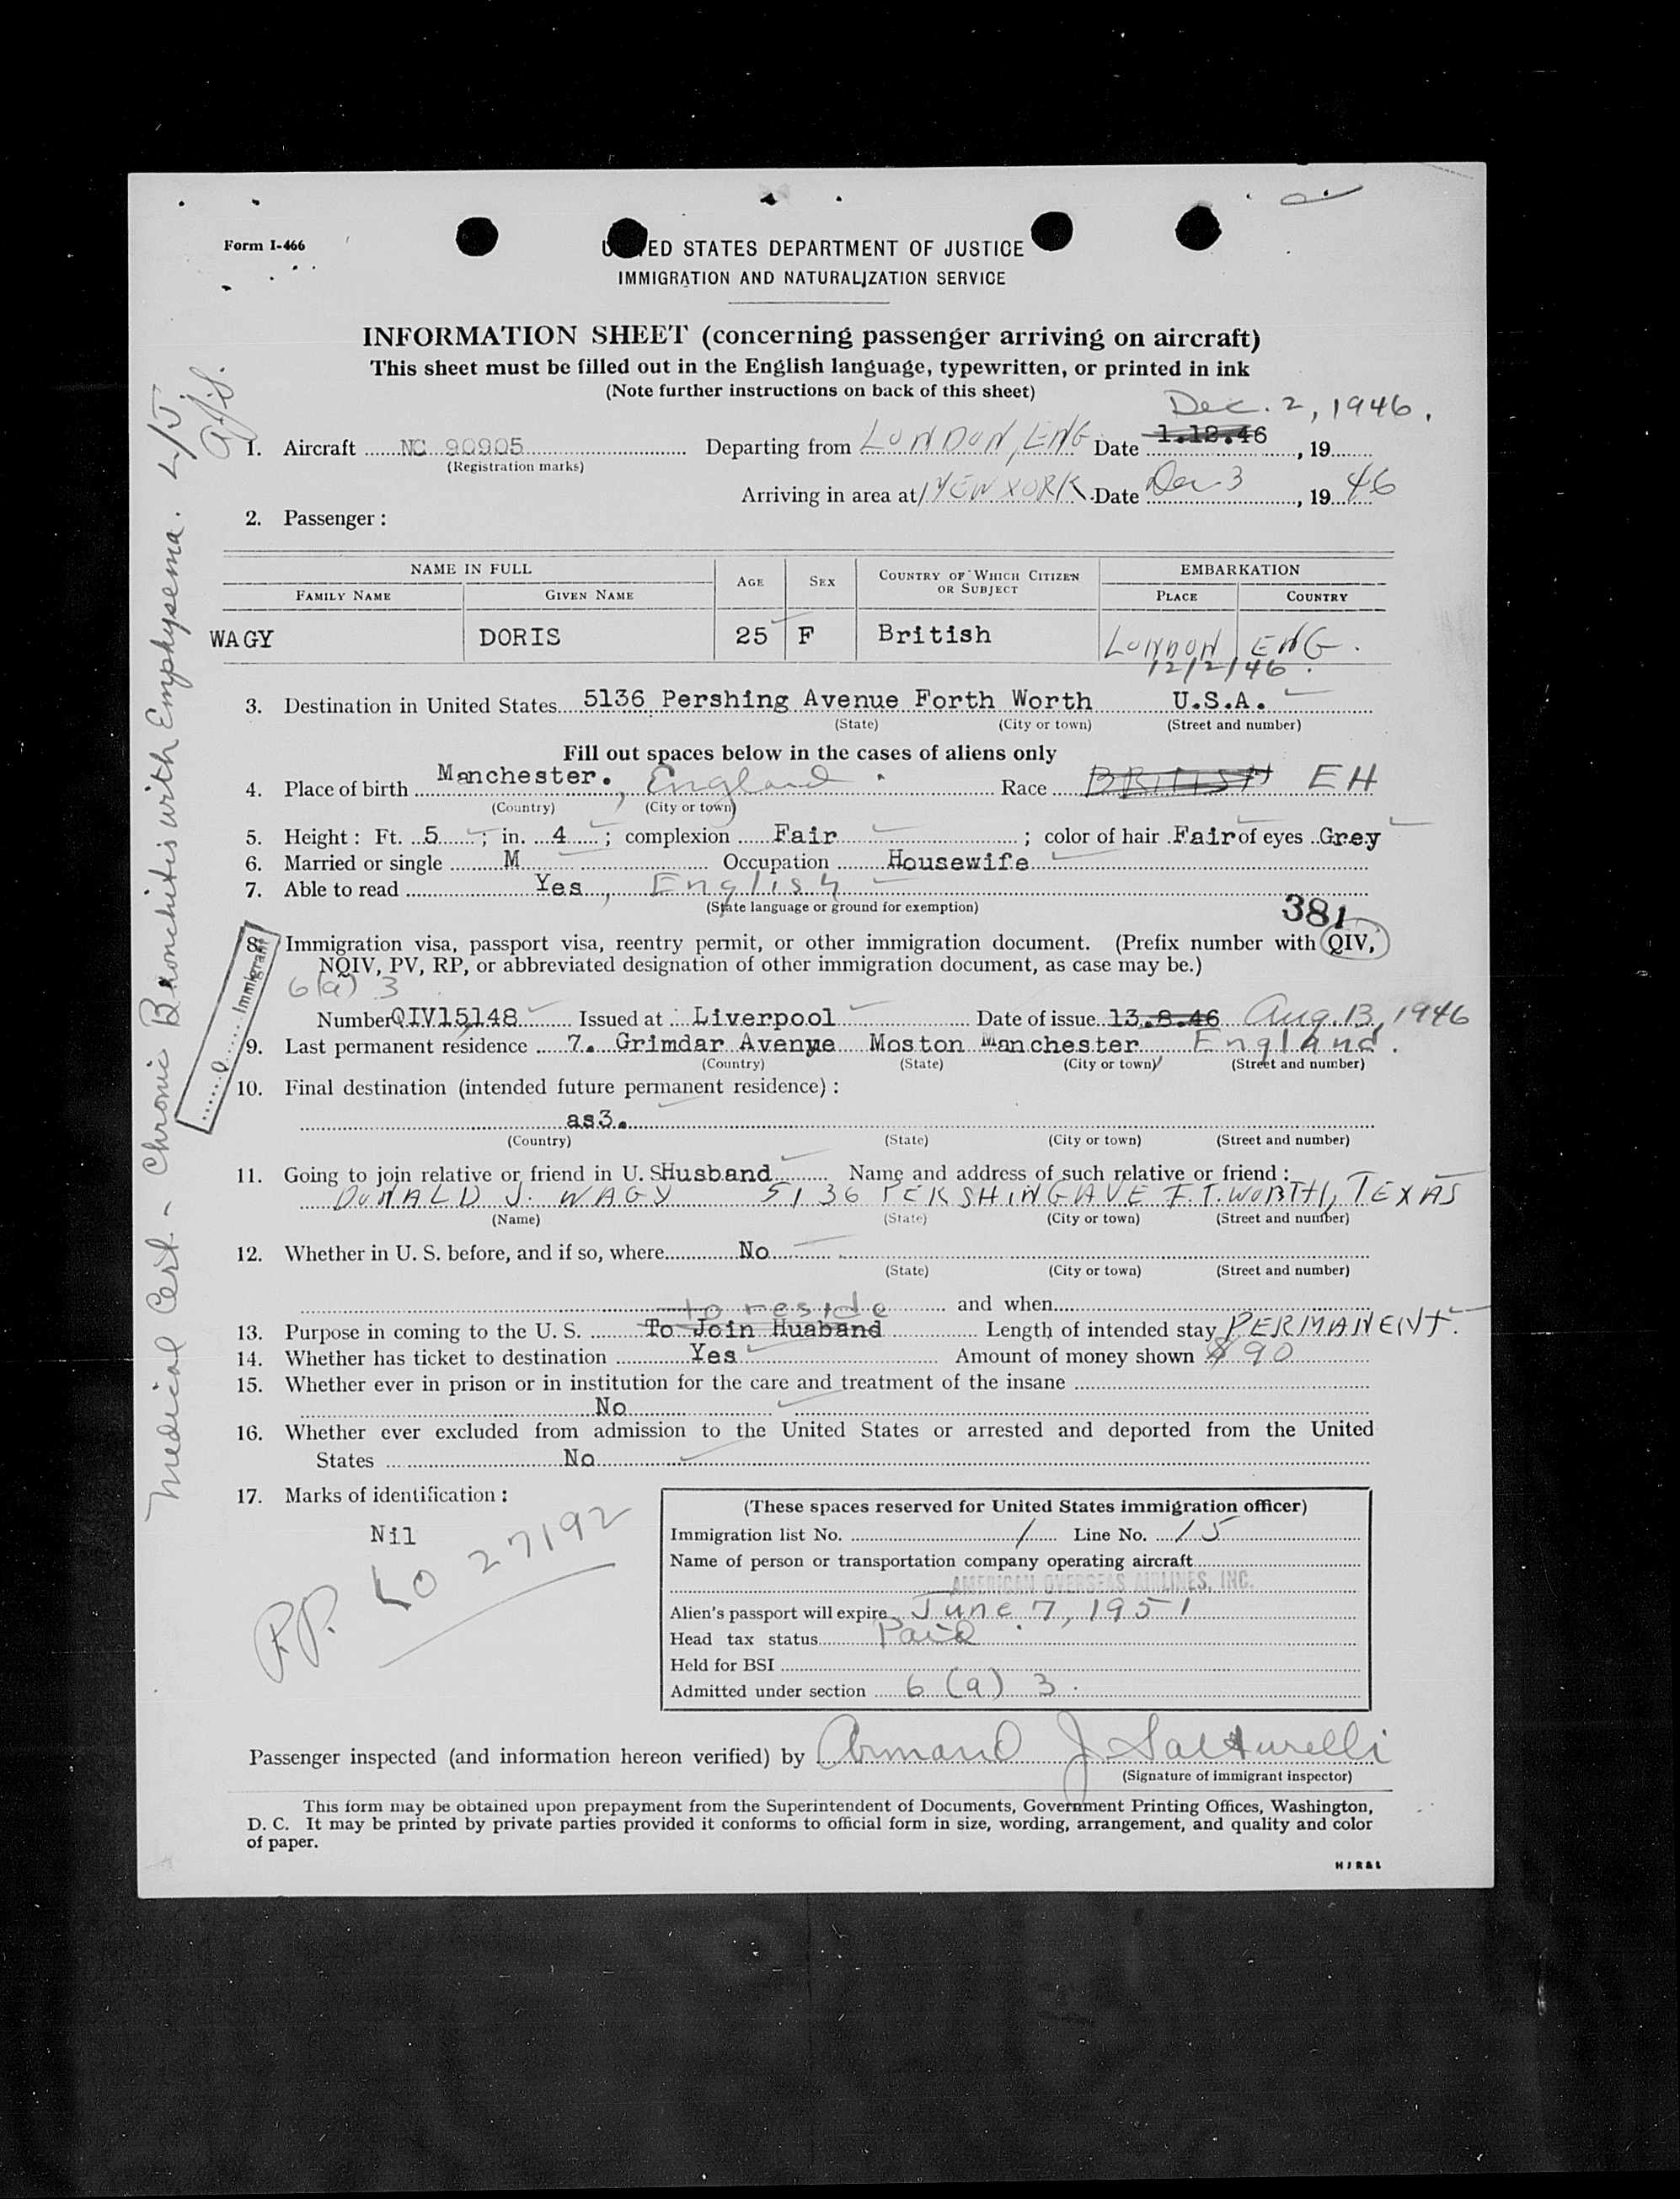 Form I-466
U ED STATES DEPARTMENT OF JUSTICE
IMMIGRATION AND NATURALIZATION SERVICE
INFORMATION SHEET (concerning passenger arriving on aircraft)
This sheet must be filled out in the English language, typewritten, or printed in ink
(Note further instructions on back of this sheet)
Dec. 2, 1946.
1. Aircraft NC 90905 Departing from LONDON, ENG Date 1.12.46, 19
(Registration marks)
Arriving in area at NEW YORK Date Dec 3, 1946
2. Passenger:
NAME IN FULL AGE SEX COUNTRY OF WHICH CITIZEN OR SUBJECT EMBARKATION
FAMILY NAME GIVEN NAME PLACE COUNTRY
WAGY DORIS 25 F British LONDON ENG.
12/2/46.
3. Destination in United States 5136 Pershing Avenue Forth Worth U.S.A.
(State) (City or town) (Street and number)
Fill out spaces below in the cases of aliens only
4. Place of birth Manchester., England. Race BRITISH EH
(Country) (City or town)
5. Height: Ft. 5; in. 4; complexion Fair; color of hair Fair of eyes Grey
6. Married or single M Occupation Housewife
7. Able to read Yes, English
(State language or ground for exemption)
381
8. Immigration visa, passport visa, reentry permit, or other immigration document. (Prefix number with QIV,
NQIV, PV, RP, or abbreviated designation of other immigration document, as case may be.)
6(a) 3
Number QIV15148 Issued at Liverpool Date of issue 13.8.46 Aug. 13, 1946
9. Last permanent residence 7. Grimdar Avenye Moston Manchester England.
(Country) (State) (City or town) (Street and number)
10. Final destination (intended future permanent residence):
as3.
(Country) (State) (City or town) (Street and number)
11. Going to join relative or friend in U. S. Husband Name and address of such relative or friend:
DONALD J. WAGY 5136 PERSHING AVE FT. WORTH, TEXAS
(Name) (State) (City or town) (Street and number)
12. Whether in U. S. before, and if so, where No
(State) (City or town) (Street and number)
and when
to reside
13. Purpose in coming to the U. S. To Join Huaband Length of intended stay PERMANENT.
14. Whether has ticket to destination Yes Amount of money shown $ 90
15. Whether ever in prison or in institution for the care and treatment of the insane
No
16. Whether ever excluded from admission to the United States or arrested and deported from the United
States No
17. Marks of identification:
Nil
PP. 27192
(These spaces reserved for United States immigration officer)
Immigration list No. 1 Line No. 15
Name of person or transportation company operating aircraft
AMERICAN OVERSEAS AIRLINES, INC.
Alien's passport will expire June 7, 1951
Head tax status Paid
Held for BSI
Admitted under section 6 (a) 3.
Passenger inspected (and information hereon verified) by Armand J Salturelli
(Signature of immigrant inspector)
This form may be obtained upon prepayment from the Superintendent of Documents, Government Printing Offices, Washington,
D. C. It may be printed by private parties provided it conforms to official form in size, wording, arrangement, and quality and color
of paper.
HJR&L
Medical Cert. - Chronic Bronchitis with Emphysema.
Immigrant